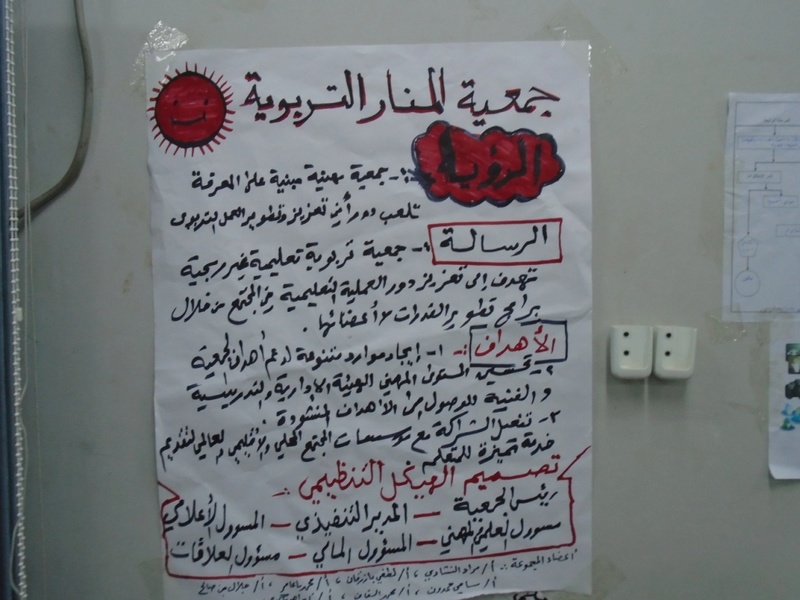 جمعية المنار التربوية
الرؤيا
:- جمعية مهنية مبنية على المعرفة
تلعب دوراً في تعزيز وتطوير العمل التربوي
الرسالة :- جمعية تربوية تعليمية غير ربحية
تهدف إلى تعزيز دور العملية التعليمية في المجتمع من خلال
برامج تطوير القدرات لأعضائها .
الأهداف :- ١- إيجاد موارد متنوعة لدعم أهداف الجمعية
٢- تحسين المستوى المهني للهيئة الإدارية والتدريسية
و الفنية للوصول إلى الأهداف المنشودة
٣- تفعيل الشراكة مع مؤسسات المجتمع المحلي والإقليمي والعالمي لتقديم
خدمة تميزة للمتعلم
تصميم الهيكل التنظيمي :-
رئيس الجمعية – المدير التنفيذي – المسؤول الأعلامي
مسؤول العلمي المهني – المسؤول المالي – مسؤول العلاقات
أعضاء المجموعة :- أ/ مراد